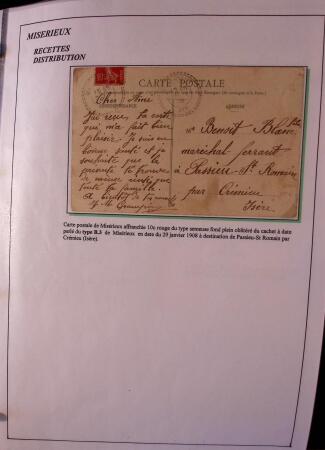 MISERIEUX
RECETTES
DISTRIBUTION
CARTE POSTALE
CORRESPONDANCE
ADRESSE
Cher Aimé
J'ai reçu ta carte
qui m'a fait bien
plaisir. Je suis en
bonne santé et je
souhaite que la
présente te trouve
de même ainsi que
toute ta famille.
Mr Benoit Blanc
maréchal ferrant
à Passieu-St Romain
par Crémieu
Isère
Carte postale de Misérieux affranchie 10c rouge du type semeuse fond plein oblitéré du cachet à date
perlé du type B.3 de Misérieux en date du 29 janvier 1908 à destination de Passieu-St Romain par
Crémieu (Isère).